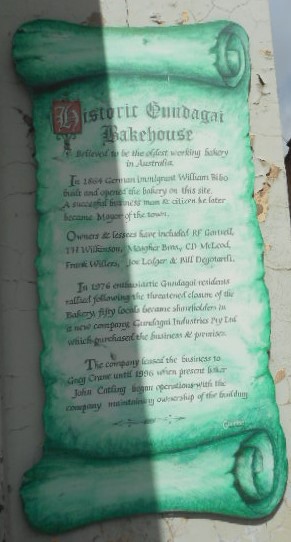 Historic Gundagai
Bakehouse
Believed to be the oldest working bakery
in Australia.
In 1864 German immigrant William Bibo
built and opened the bakery on this site.
A succesful business man & citizen he later
became Mayor of the town.
Owners & lessees have included RF Gartrell,
TH Wilkinson, Mosgher Bros., CD McLeod,
Frank Willers, Joe Ledger & Bill Degotardi.
In 1976 enthusiastic Gundagai residents
rallied following the threatened closure of the
Bakery, fifty locals became shareholders in
a new company, Gundagai Industries Pty Ltd
which purchased the business & premises.
The company leased the business to
Greg Crane until 1996 when present baker
John Catling began operations with the
company maintaining ownership of the building.